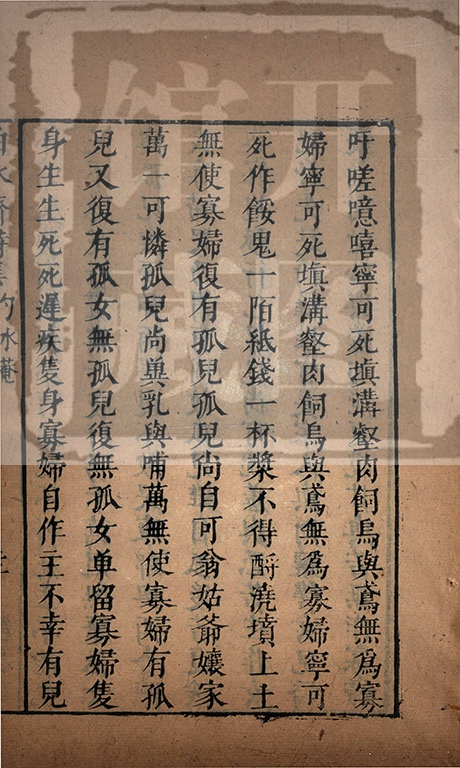 吁嗟噫嘻寧可死塡溝壑肉飼烏與鳶無爲寡
婦寧可死塡溝壑肉飼烏與鳶無爲寡婦寧可
死作餒鬼一陌紙錢一杯漿不得酹澆墳上土
無使寡婦復有孤兒孤兒尚自可翁姑爺孃家
萬一可憐孤兒尚與乳與哺萬無使寡婦有孤
兒又復有孤女無孤兒復無孤女单留寡婦隻
身生生死死遲疾隻身寡婦自作主不幸有兒